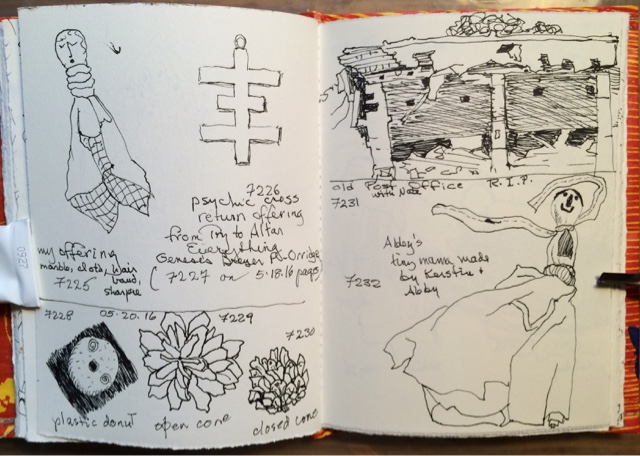 my offering
marble, cloth, hair
braid,
7225 sharpie
7226
psychic cross
return offering
from Try to Altar
Everything
Genesis Breyer P-Orridge
(7227 on 5.18.16 pages)
7228 05.20.16 7229
7230
plastic donut open cone closed cone
old Post office R.I.P.
7231 with Note
Abby's
tiny mama made
7232 by Kerstin +
Abby
0927